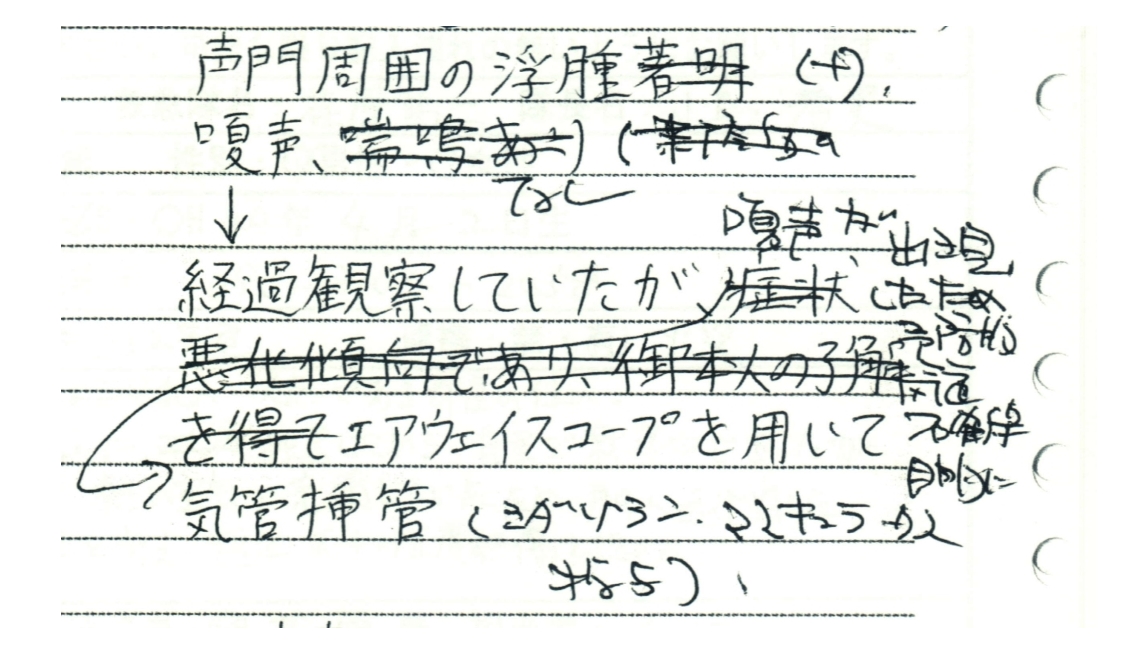 声門周囲の浮腫著明 (+).
嗄声、喘鳴あり) (
なし
↓
嗄声が出現
経過観察していたが、症状 したため
予防的
悪化傾向であり、御本人の了解
挿管
を得てエアウェイスコープを用いて
目的に
気管挿管 (ミダゾラム.マスキュラックス